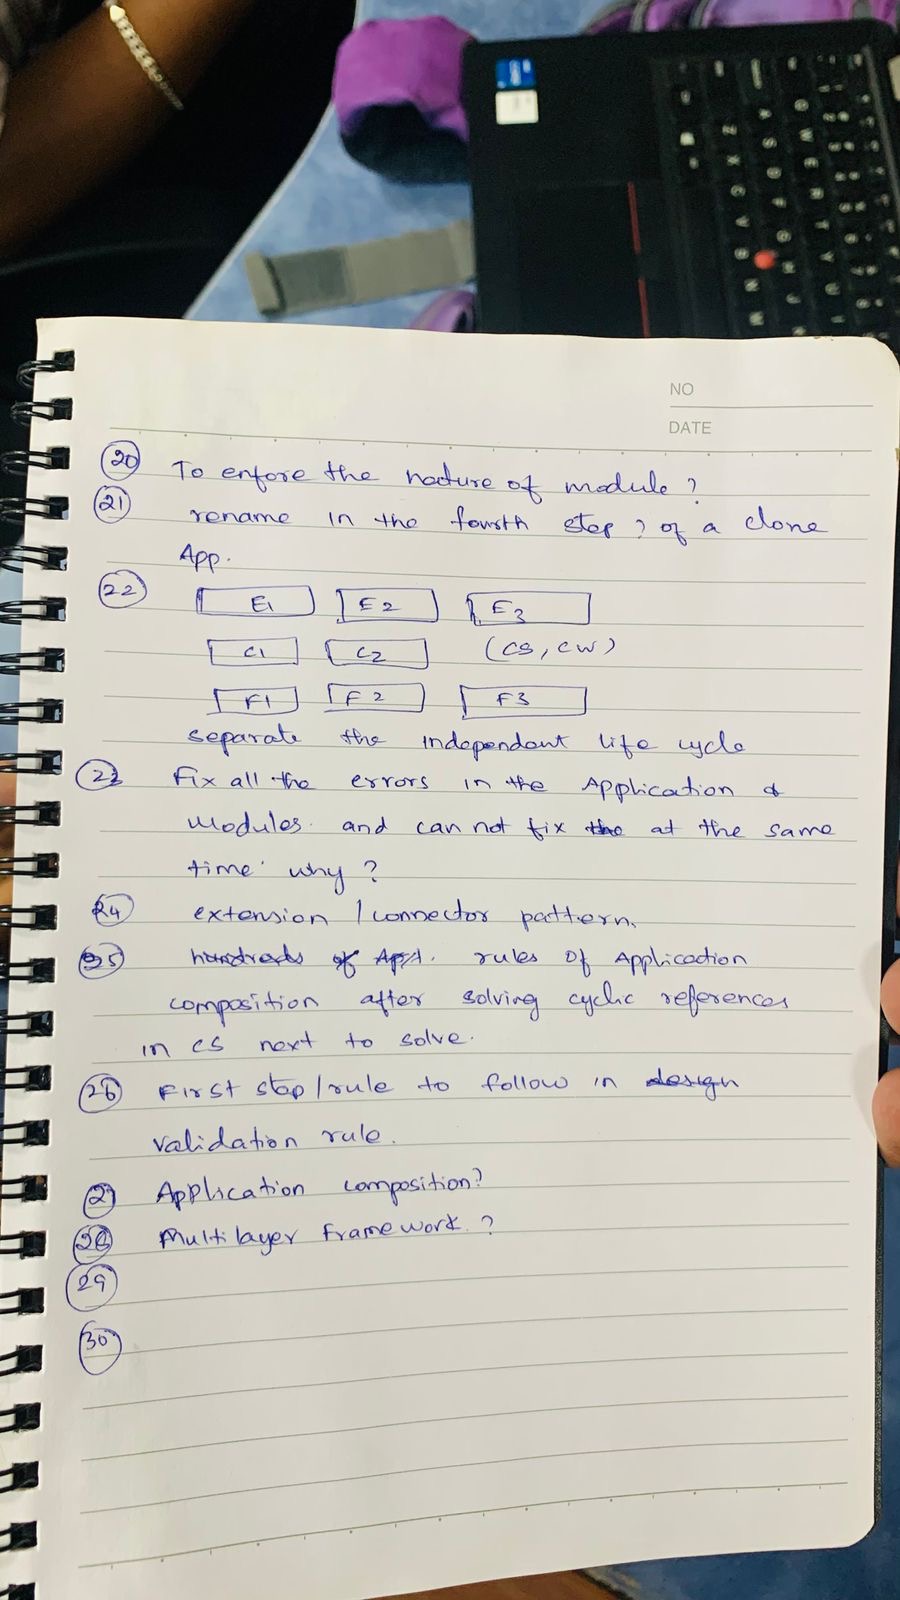 NO
DATE
20 To enfore the nature of module?
21 rename in the fourth step, of a clone
App.
22 E1 E2 E3
C1 C2 (CS, CW)
F1 F2 F3
separate the independent life cycle
23 Fix all the errors in the Application &
Modules. and can not fix the at the same
time why?
24 extension / connector pattern.
25 hundreds of App. rules of Application
composition after solving cyclic references
in CS next to solve.
26 First step/rule to follow in design
validation rule.
27 Application composition?
28 Multilayer framework.?
29
30